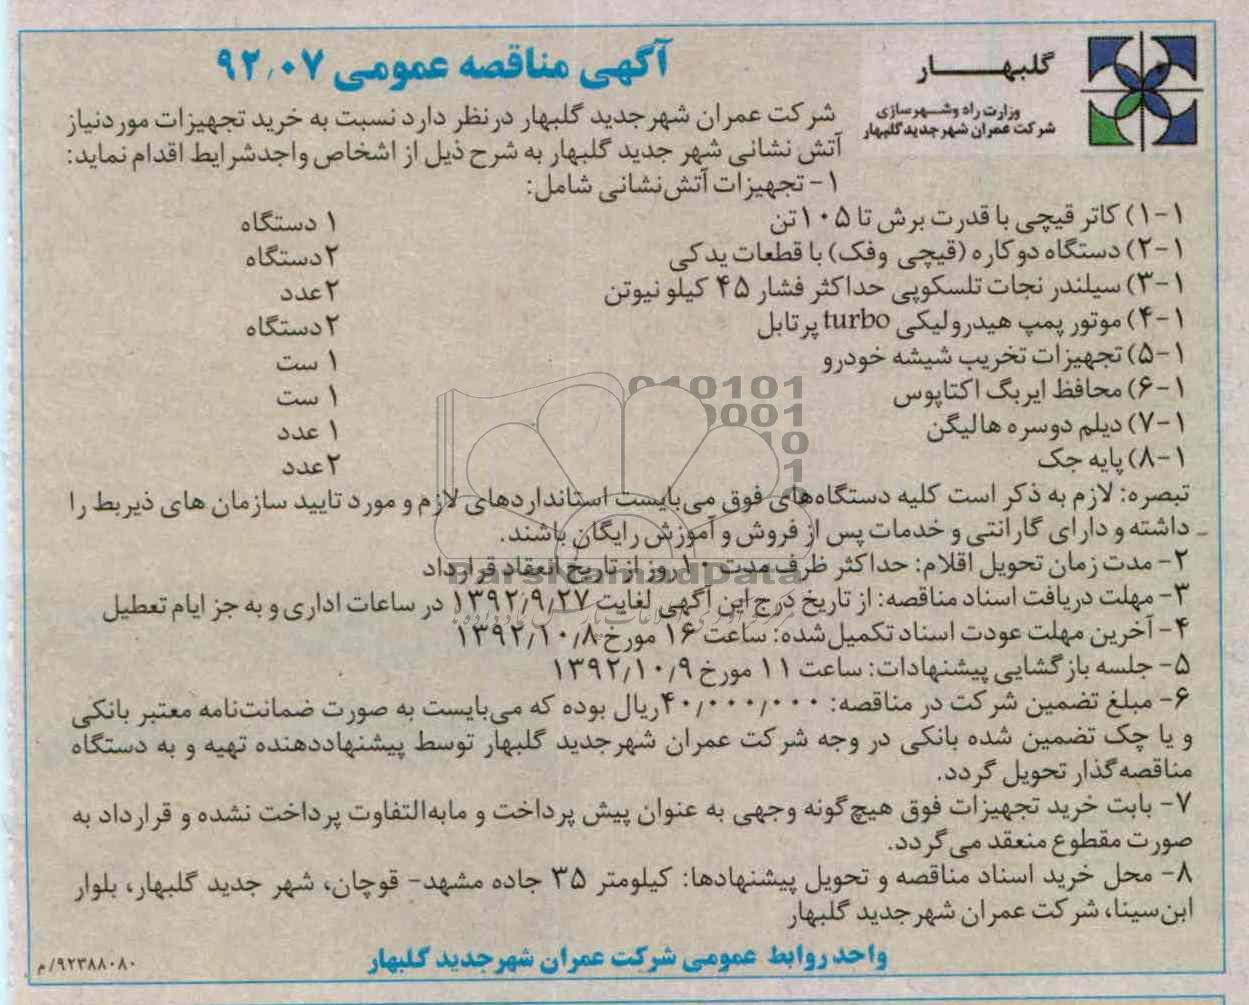 آگهی مناقصه عمومی ۹۲٫۰۷
گلبهار
وزارت راه وشهرسازی
شرکت عمران شهرجدیدگلبهار
شرکت عمران شهرجدید گلبهار درنظر دارد نسبت به خرید تجهیزات موردنیاز
آتش نشانی شهر جدید گلبهار به شرح ذیل از اشخاص واجدشرایط اقدام نماید:
۱- تجهیزات آتش‌نشانی شامل:
۱-۱) کاتر قیچی با قدرت برش تا ۱۰۵تن ۱ دستگاه
۲-۱) دستگاه دو کاره (قیچی وفک) با قطعات یدکی ۲دستگاه
۳-۱) سیلندر نجات تلسکوپی حداکثر فشار ۴۵ کیلو نیوتن ۲عدد
۴-۱) موتور پمپ هیدرولیکی turbo پرتابل ۲دستگاه
۵-۱) تجهیزات تخریب شیشه خودرو ۱ ست
۶-۱) محافظ ایربگ اکتاپوس ۱ ست
۷-۱) دیلم دوسره هالیگن ۱ عدد
۸-۱) پایه جک ۲عدد
تبصره: لازم به ذکر است کلیه دستگاه‌های فوق می‌بایست استانداردهای لازم و مورد تایید سازمان های ذیربط را
داشته و دارای گارانتی و خدمات پس از فروش و آموزش رایگان باشند.
۲- مدت زمان تحویل اقلام: حداکثر ظرف مدت ۱۰روز از تاریخ انعقاد قرارداد
ParsNamadData
۳- مهلت دریافت اسناد مناقصه: از تاریخ درج این آگهی لغایت ۱۳۹۲٫۹٫۲۷ در ساعات اداری و به جز ایام تعطیل
۴- آخرین مهلت عودت اسناد تکمیل‌شده: ساعت ۱۶ مورخ ۱۳۹۲٫۱۰٫۸
۵- جلسه بازگشایی پیشنهادات: ساعت ۱۱ مورخ ۱۳۹۲٫۱۰٫۹
۶- مبلغ تضمین شرکت در مناقصه: ۴۰٫۰۰۰٫۰۰۰ریال بوده که می‌بایست به صورت ضمانت‌نامه معتبر بانکی
و یا چک تضمین شده بانکی در وجه شرکت عمران شهرجدید گلبهار توسط پیشنهاددهنده تهیه و به دستگاه
مناقصه‌گذار تحویل گردد.
۷- بابت خرید تجهیزات فوق هیچ‌گونه وجهی به عنوان پیش پرداخت و مابه‌التفاوت پرداخت نشده و قرارداد به
صورت مقطوع منعقد می‌گردد.
۸- محل خرید اسناد مناقصه و تحویل پیشنهادها: کیلومتر ۳۵ جاده مشهد- قوچان، شهر جدید گلبهار، بلوار
ابن‌سینا، شرکت عمران شهرجدید گلبهار
واحد روابط عمومی شرکت عمران شهرجدید گلبهار
۹۲۳۸۸۰۸۰/م